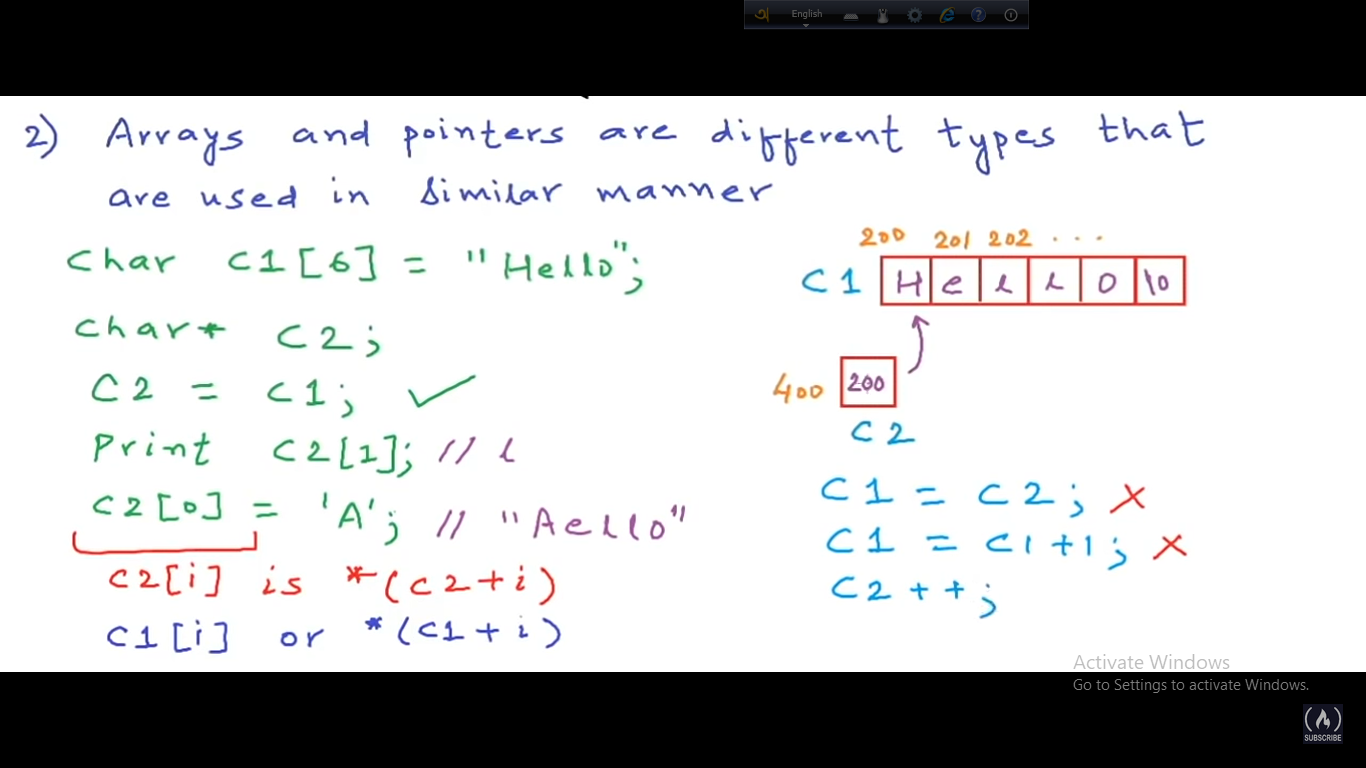 English
2) Arrays and pointers are different types that
are used in similar manner
Char C1[6] = "Hello";
Char* C2;
C2 = C1; ✓
Print C2[1]; // l
C2[0] = 'A'; // "Aello"
C2[i] is *(C2+i)
C1[i] or *(C1+i)
200 201 202 ...
C1 H e l l o \0
400 200
C2
C1 = C2; X
C1 = C1+1; X
C2++;
Activate Windows
Go to Settings to activate Windows.
SUBSCRIBE